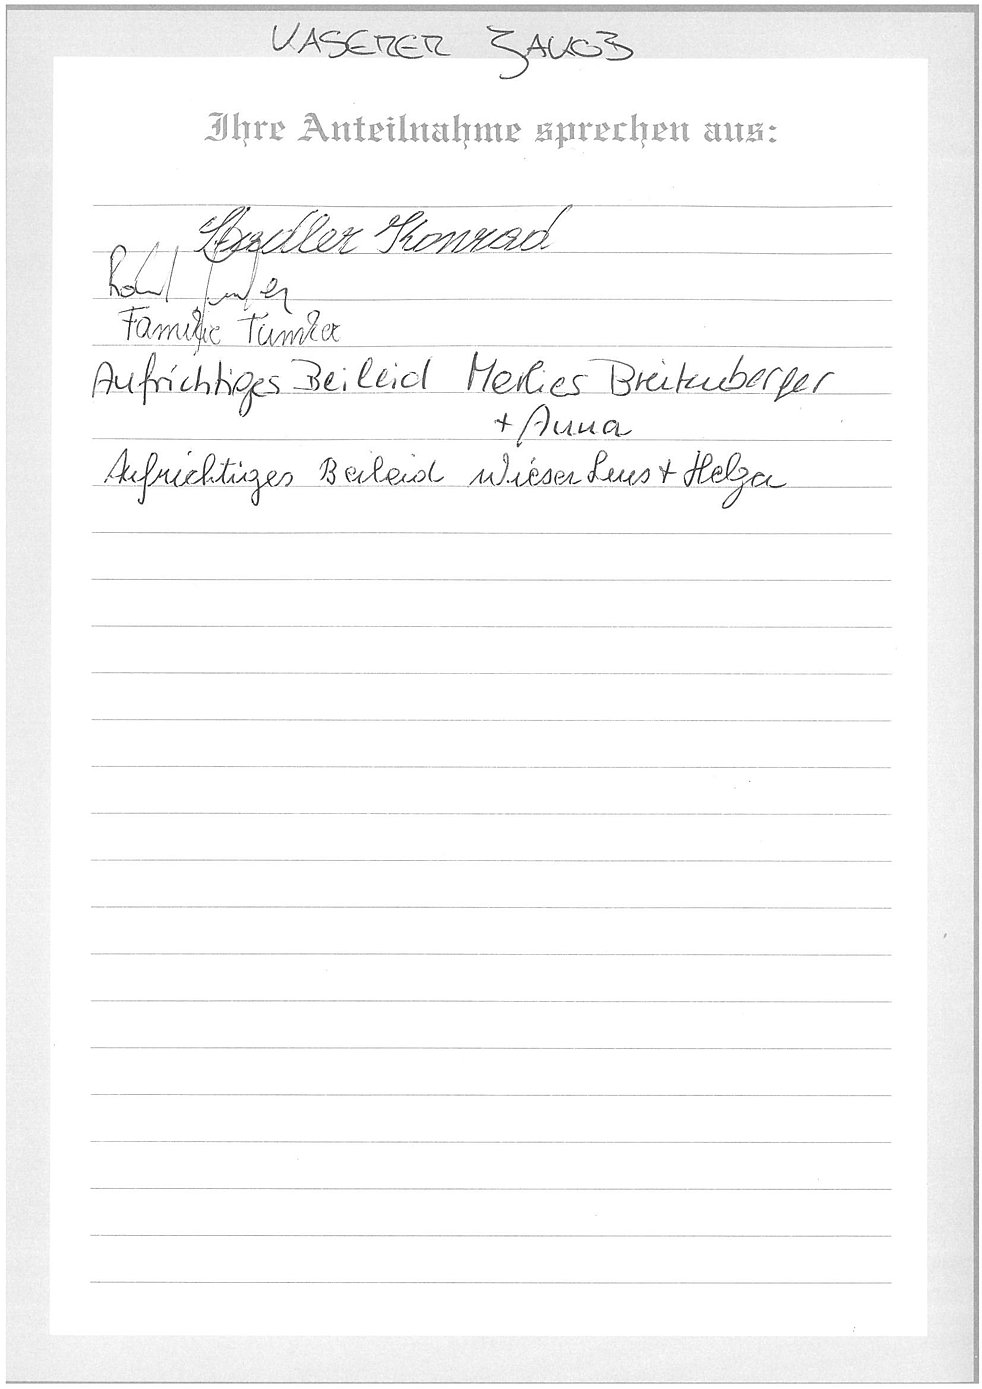 KASERER JAKOB
Ihre Anteilnahme sprechen aus:
Stadler Konrad
Familie Tumler
Aufrichtiges Beileid Merlies Breitenberger
+ Anna
Aufrichtiges Beileid Wieser Luis + Helga